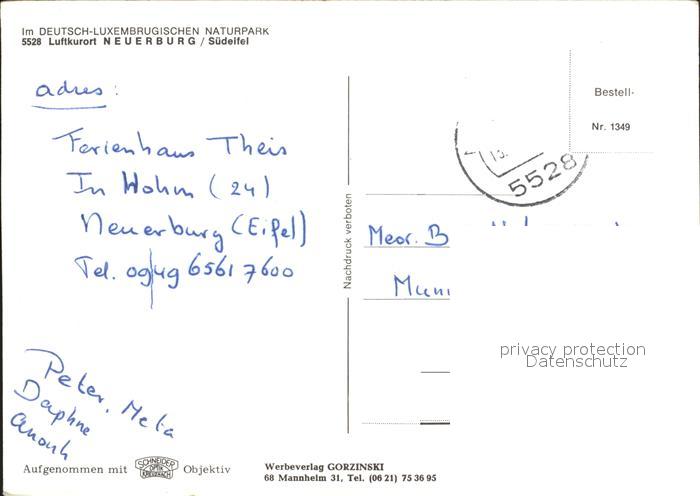 Im DEUTSCH-LUXEMBRUGISCHEN NATURPARK
5528 Luftkurort NEUERBURG / Südeifel
adres:
Ferienhaus Theis
In Hohm (24)
Neuerburg (Eifel)
Tel. 09/49 6561 7600
Peter, Meta
Daphne
Anouk
Aufgenommen mit SCHNEIDER OPTIK KREUZNACH Objektiv
Werbeverlag GORZINSKI
68 Mannheim 31, Tel. (06 21) 75 36 95
Nachdruck verboten
Bestell-
Nr. 1349
5528
Mevr. B
Mun
privacy protection
Datenschutz